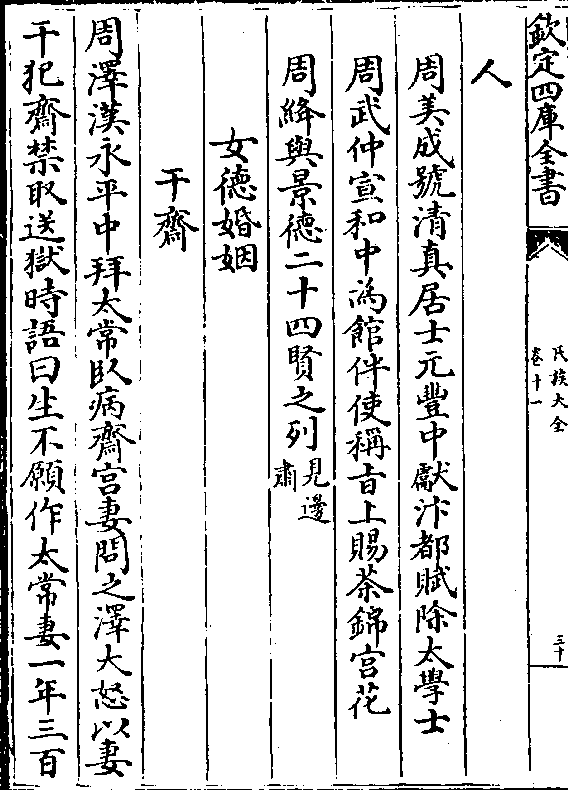 欽定四庫全書
氏族大全
卷十一
三十
人
周美成號清真居士元豐中獻汴都賦除太學士
周武仲宣和中為館伴使稱㫖上賜茶錦宫花
周絳與景德二十四賢之列見邊
肅
女德婚姻
干齋
周澤漢永平中拜太常臥病齋宫妻問之澤大怒以妻
干犯齋禁取送獄時語曰生不願作太常妻一年三百